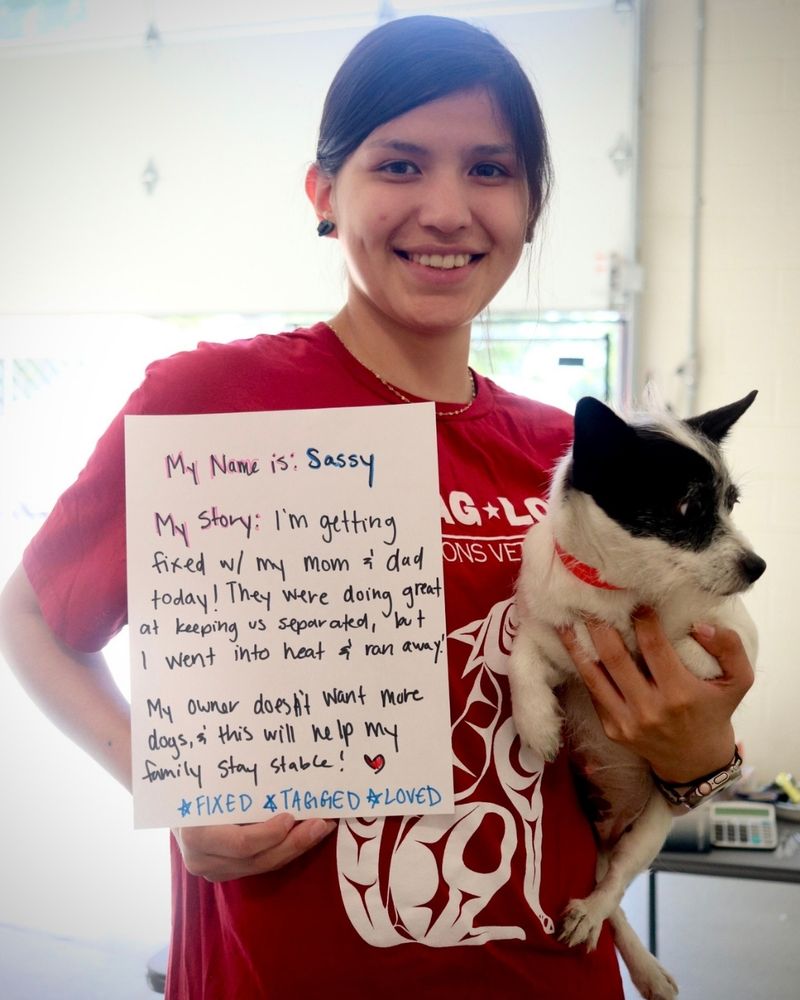 My Name is: Sassy
My Story: I'm getting
fixed w/ my mom & dad
today! They were doing great
at keeping us separated, but
I went into heat & ran away!
My owner doesn't want more
dogs, & this will help my
family stay stable!
*FIXED *TAGGED *LOVED
AG★LO
ONS VET